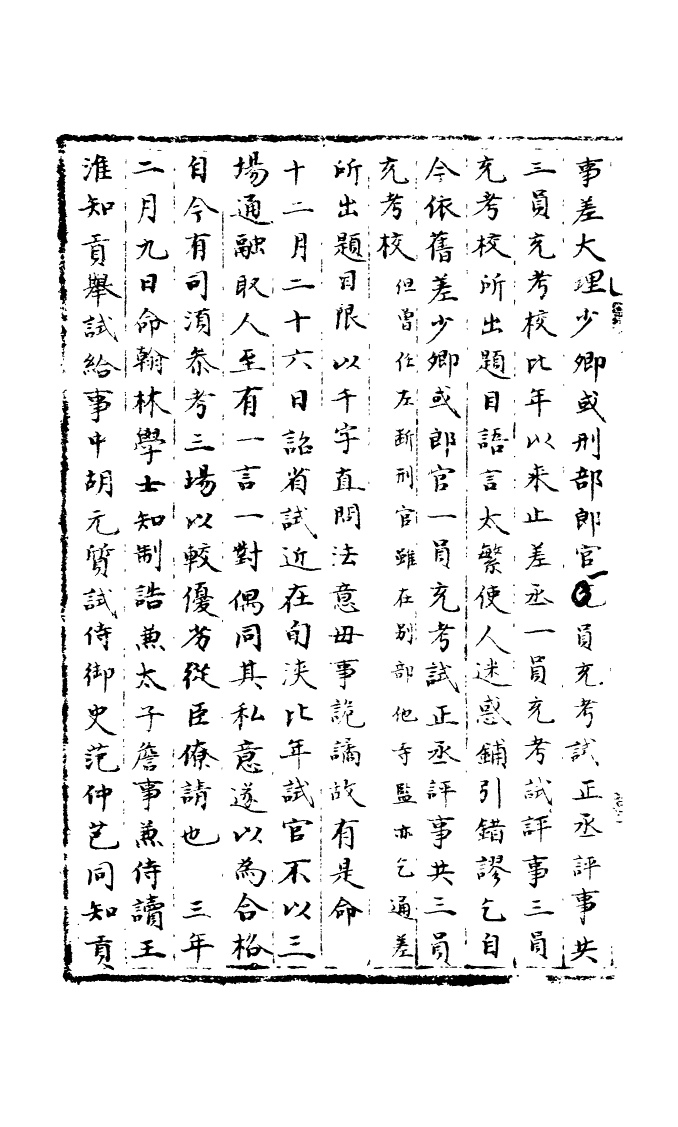 事差大理少卿或刑部郎官一員充考試正丞評事共
三員充考校比年以来止差丞一員充考試評事三員
充考校所出題目語言太繁使人迷惑鋪引錯謬乞自
今依舊差少卿或郎官一員充考試正丞評事共三員
充考校但曽任左断刑官雖在别部他寺監亦乞通差
所出題目限以千字直問法意毋事詭譎故有是命
十二月二十六日詔省試近在旬浹比年試官不以三
場通融取人至有一言一對偶同其私意遂以為合格
自今有司湏叅考三場以較優劣從臣僚請也　三年
二月九日命翰林學士知制誥兼太子詹事兼侍讀王
淮知貢舉試給事中胡元質試侍御史范仲芑同知貢